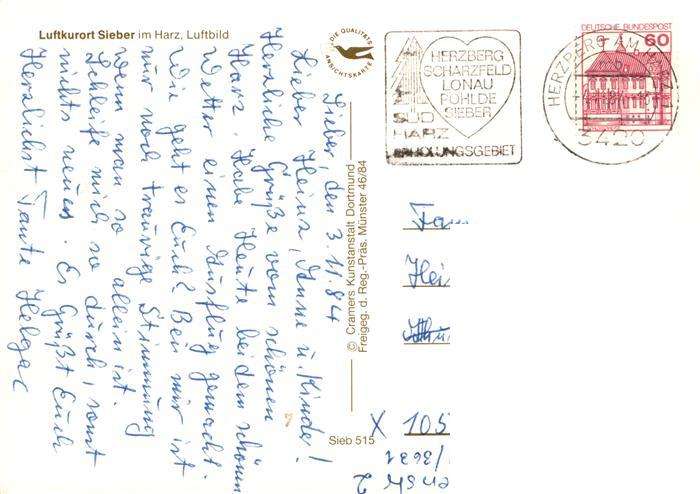 Luftkurort Sieber im Harz, Luftbild
DIE QUALITÄTS
ANSICHTSKARTE
Sieber, den 3.11.84
Lieber Heinz, Anne u. Kinder!
Herzliche Grüße vom schönen
Harz. Habe Heute bei dem schönen
Wetter einen Ausflug gemacht.
Wie geht es Euch? Bei mir ist
nur noch traurige Stimmung
wenn man so allein ist.
Schleife mich so durch, sonst
nichts neues. Es Grüßt Euch
Herzlichst Tante Helga
© Cramers Kunstanstalt Dortmund
Freigeg. d. Reg.-Präs. Münster 46/84
Sieb 515
HERZBERG
SCHARZFELD
LONAU
POHLDE
SIEBER
SÜD
HARZ
ERHOLUNGSGEBIET
HERZBERG AM HARZ
3420
DEUTSCHE BUNDESPOST
60
Fam
Hei
X 105
/3631